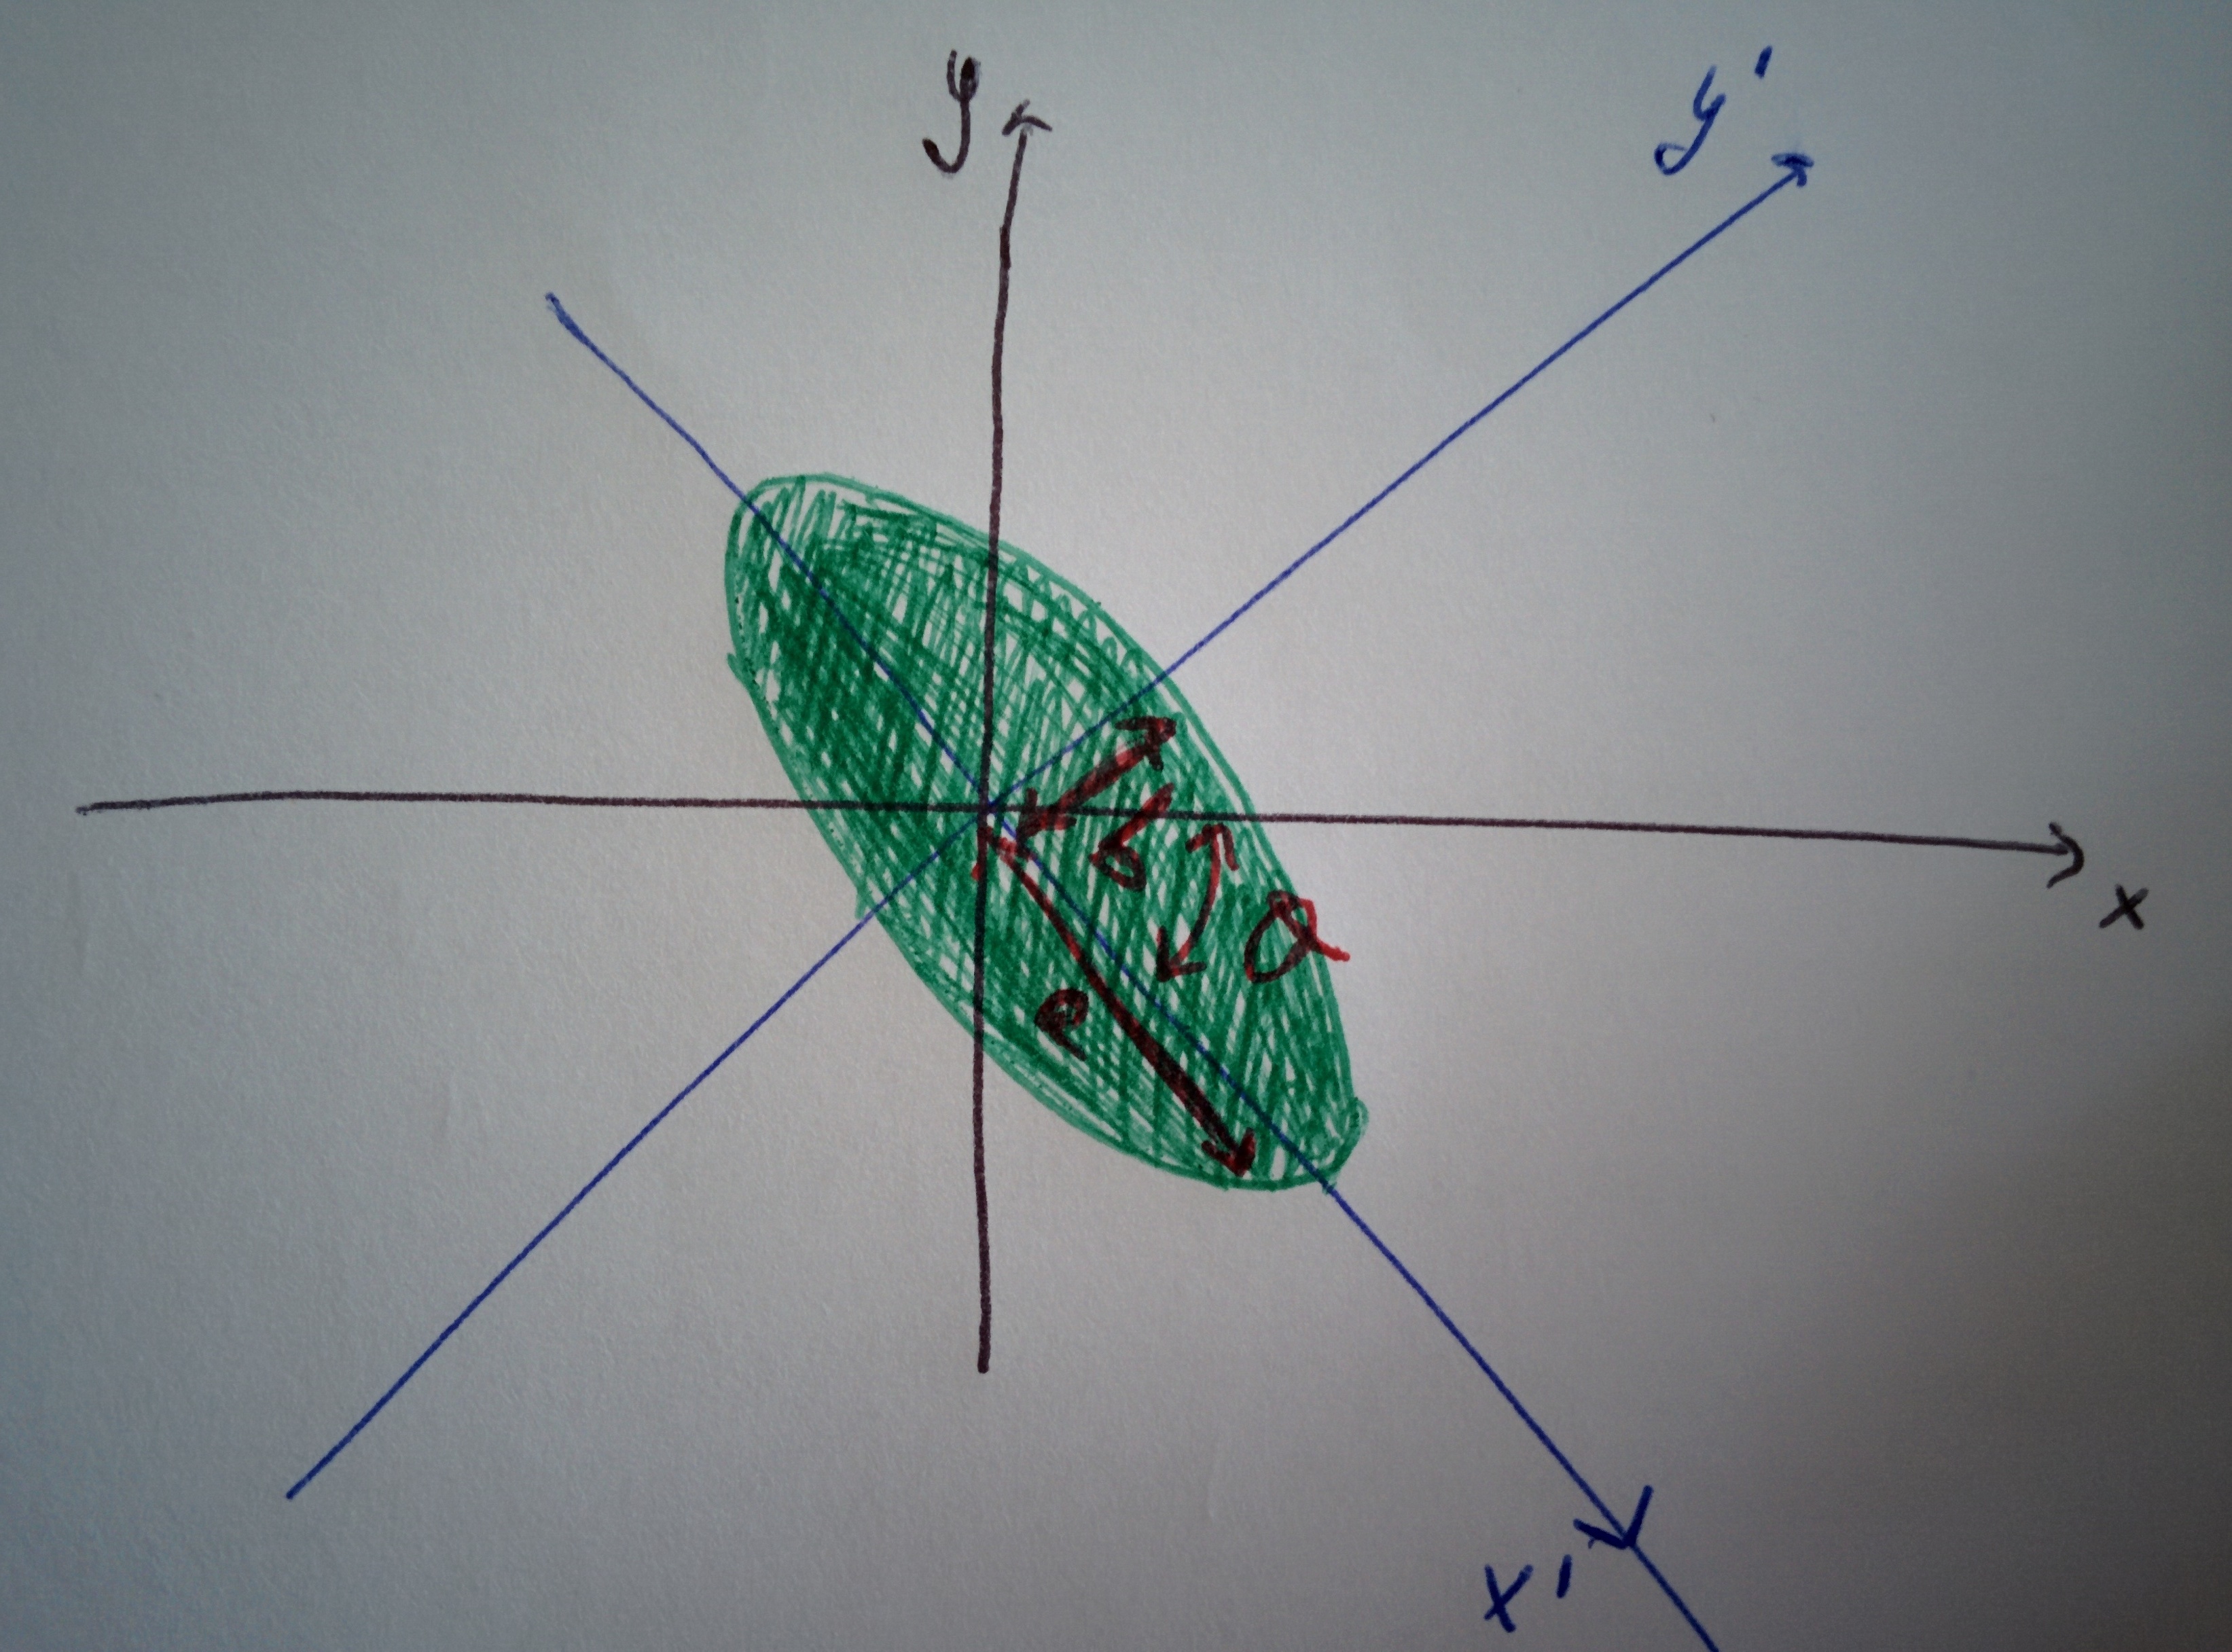 y
y'
b
α
e
x
x'